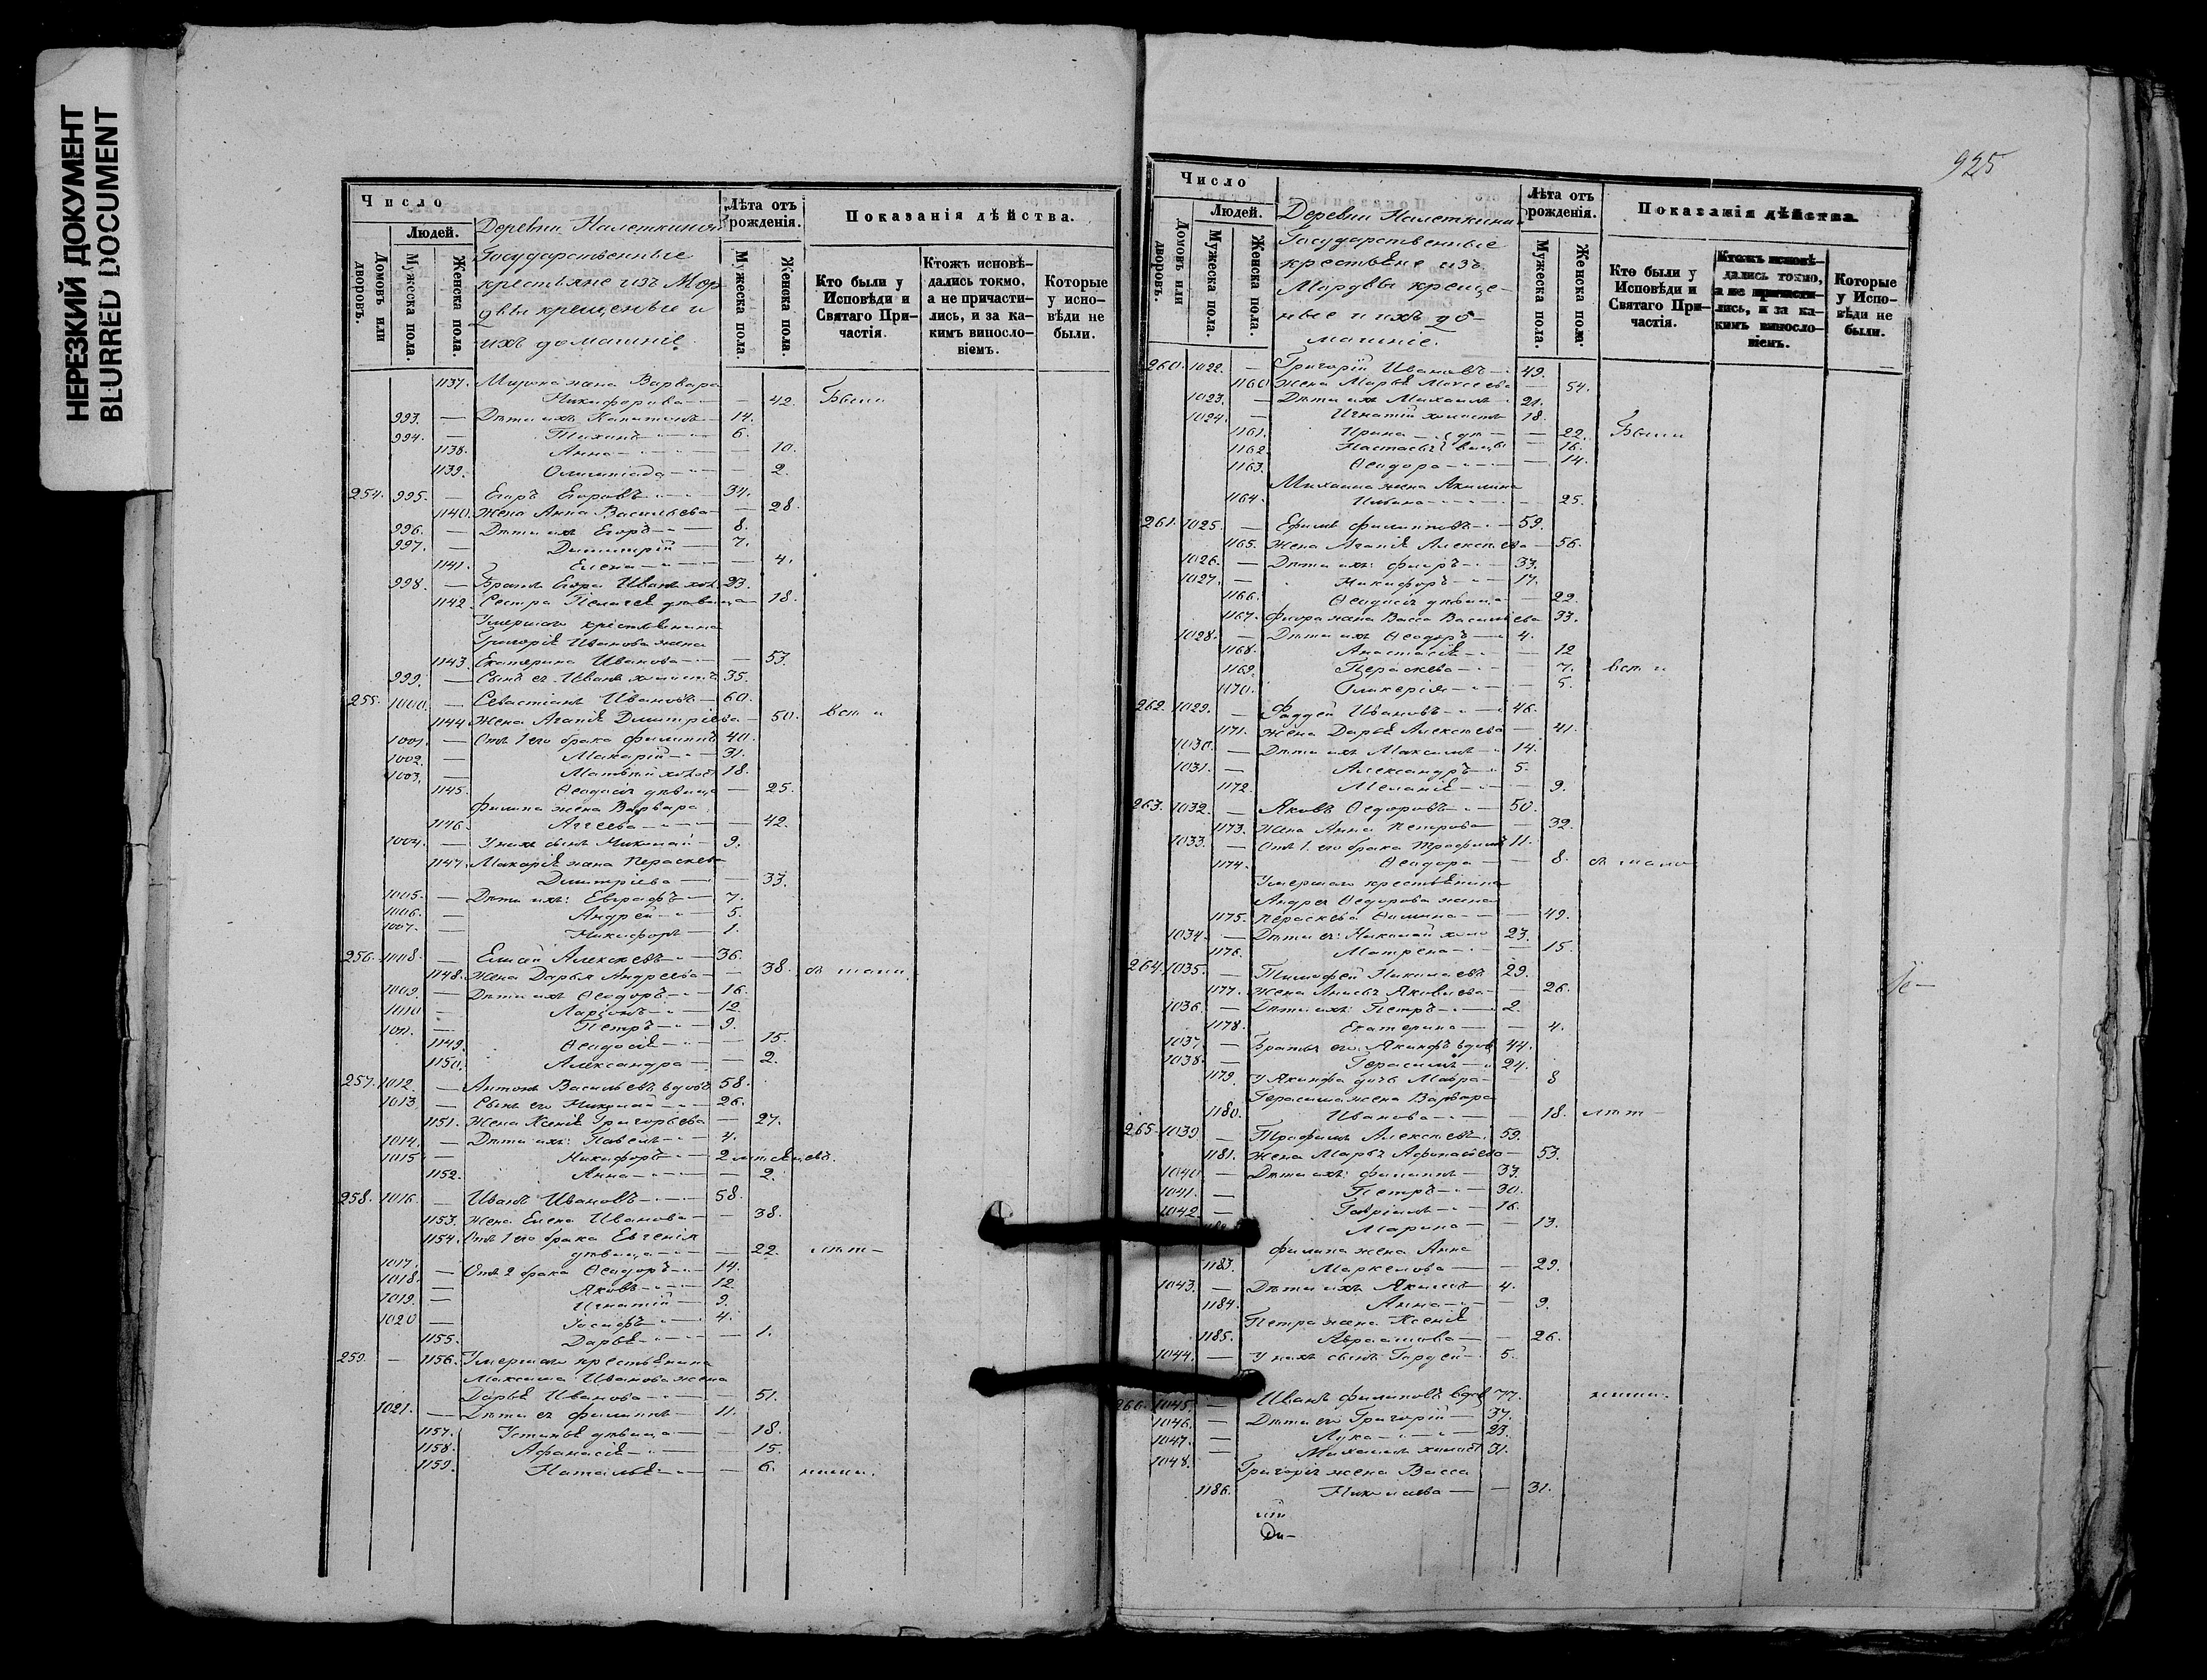 НЕРЕЗКИЙ ДОКУМЕНТ
BLURRED DOCUMENT
Число
Людей.
Домовъ или дворовъ.
Мужеска пола.
Женска пола.
Деревни Налеткиной
Государственные
крестьяне изъ Мор-
двы крещеные и
ихъ домашніе.
Лѣта отъ рожденія.
Мужеска пола.
Женска пола.
Показанія дѣйства.
Кто были у Исповѣди и Святаго Причастія.
Ктожъ исповѣдались токмо, а не причастились, и за какимъ винословіемъ.
Которые у исповѣди не были.
1137. Мирона жена Варвара
Никифорова — 42. Были
993. — Дѣти ихъ Капитонъ — 14.
994. — Тихонъ — 6.
1138. Анна — 10.
1139. Олимпіада — 2.
254. 995. — Егоръ Егоровъ — 34.
1140. Жена Анна Васильева — 28.
996. — Дѣти ихъ Егоръ — 8.
997. — Димитрій — 7.
1141. Елена — 4.
998. — Братъ Егора Иванъ хол. 23.
1142. Сестра Пелагея дѣвица — 18.
Умершаго крестьянина
Григорія Иванова жена
1143. Екатерина Иванова — 53.
999. — Сынъ ея Иванъ холостъ 35.
255. 1000. — Севастіанъ Ивановъ — 60.
1144. Жена Агапія Димитріева — 50.
1001. — Отъ 1 его брака Филиппъ 40.
1002. — Макарій — 31.
1003. — Матвѣй холос 18.
1145. Ѳеодосія дѣвица — 25.
Филипа жена Варвара
1146. Аггеева — 42.
1004. — У нихъ сынъ Николай — 9.
1147. Макарія жена Параскева
Димитріева — 33.
1005. — Дѣти ихъ: Евграфъ — 7.
1006. — Андрей — 5.
1007. — Никифоръ — 1.
256. 1008. — Елисей Алексѣевъ — 36.
1148. Жена Дарья Андреева — 38.
1009. — Дѣти ихъ Ѳеодоръ — 16.
1010 — Ларіонъ — 12.
1011. — Петръ — 9.
1149. Ѳеодосія — 15.
1150. Александра — 2.
257. 1012. — Антонъ Васильевъ вдовъ 58.
1013 — Сынъ его Николай — 26.
1151. Жена Ксенія Григорьева — 27.
1014. — Дѣти ихъ: Павелъ — 4.
1015 — Никифоръ — 2 мѣсяцевъ.
1152. Анна — 2.
258. 1016. — Иванъ Ивановъ — 58.
1153. Жена Елена Иванова — 38.
1154. Отъ 1 его брака Евгенія
дѣвица — 22.
1017. — Отъ 2 брака Ѳеодоръ — 14.
1018. — Яковъ — 12
1019. — Игнатій — 9.
1020 — Іосифъ — 4.
1155. Дарья — 1.
259. — 1156. Умершаго крестьянина
Максима Иванова жена
Дарья Иванова — 51.
1021. — Дѣти ея Филиппъ — 11.
1157. Устинья дѣвица — 18.
1158. Афанасія — 15.
1159. Наталья — 6.
925
Число
Людей.
Домовъ или дворовъ.
Мужеска пола.
Женска пола.
Деревни Налеткиной
Государственные
крестьяне изъ
Мордвы креще-
ные и ихъ до-
машніе.
Лѣта отъ рожденія.
Мужеска пола.
Женска пола.
Показанія дѣйства.
Кто были у Исповѣди и Святаго Причастія.
Ктожъ исповѣдались токмо, а не причастились, и за какимъ винословіемъ.
Которые у Исповѣди не были.
260. 1022. — Григорій Ивановъ — 49.
1160 Жена Марья Моисеева — 54.
1023. — Дѣти ихъ Михаилъ — 21.
1024. — Игнатій холостъ 18.
1161. Ирина — 22. Были
1162 Настасья — 16.
1163. Ѳеодора — 14.
Михаила жена Акилина
1164. Ильина — 25.
261. 1025. — Ефимъ Филипповъ — 59.
1165. Жена Агапія Алексѣева — 56.
1026. — Дѣти ихъ: Флоръ — 33.
1027. — Никифоръ — 17.
1166. Ѳеодосія дѣвица — 22.
1167. Флора жена Васса Васильева 33.
1028. — Дѣти ихъ Ѳеодоръ — 4.
1168. Анастасія — 12
1169. Параскева — 7.
1170. Гликерія — 5.
262. 1029. — Фаддей Ивановъ — 46.
1171. Жена Дарья Алексѣева — 41.
1030. — Дѣти ихъ Максимъ — 14.
1031. — Александръ — 5.
1172. Меланія — 9.
263. 1032. — Яковъ Ѳедоровъ — 50.
1173. Жена Анна Петрова — 32.
1033. — Отъ 1. его брака Трофимъ 11.
1174. Ѳеодора — 8.
Умершаго крестьянина
Андрея Ѳедорова жена
1175. Параскева Фомина — 49.
1034. — Дѣти ея: Николай холо 23.
1176. Матрена — 15.
264. 1035. — Тимофей Николаевъ 29.
1177. Жена Анисья Яковлева — 26.
1036. — Дѣти ихъ: Петръ — 2.
1178. Екатерина — 4.
1037. — Братья его: Якинфъ вдовъ 44.
1038. — Герасимъ — 24.
1179. У Якинфа дочь Мавра — 8
Герасима жена Варвара
1180. Иванова — 18.
265. 1039 — Трофимъ Алексѣевъ 59.
1181. Жена Марья Афанасьева — 53.
1040 — Дѣти ихъ: Филиппъ — 33.
1041. — Петръ — 30.
1042 — Гавріилъ — 16.
Марина — 13.
Филипа жена Анна
1183. Маркелова — 29.
1043. — Дѣти ихъ Якимъ — 4.
1184. Анна — 9.
Петра жена Ксенія
1185. Авраамова — 26.
1044. — У нихъ сынъ Гордей — 5.
266. 1045. — Иванъ Филиповъ вдов 77.
1046. — Дѣти его Григорій — 37.
1047. — Лука — 23.
1048. — Михаилъ холост 31.
Григорія жена Васса
1186. Николаева — 31.